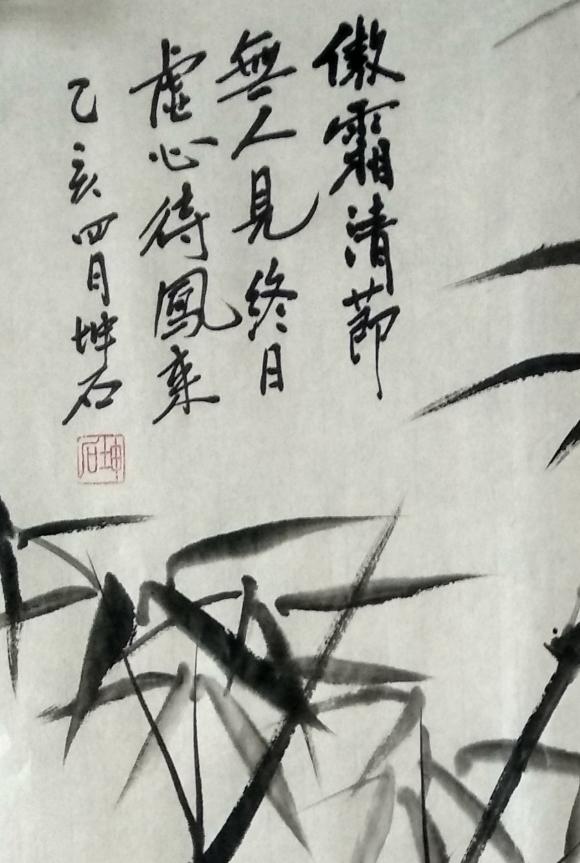 傲霜清節
無人見終日
虛心待鳳來
乙亥四月坤石
坤石